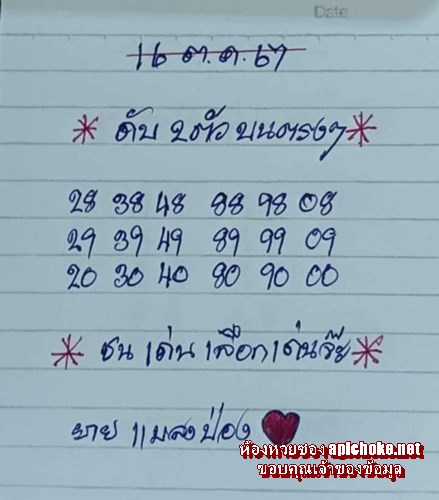 Date
16 ต.ค. 67
* ดับ 2ตัว บนตรงๆ *
28 38 48 88 98 08
29 39 49 89 99 09
20 30 40 80 90 00
* ชน เด่น เลือก เด่นจ๊ะ *
ยาย แมลงป่อง
ห้องหวยซอง apichoke.net
ขอบคุณเจ้าของข้อมูล